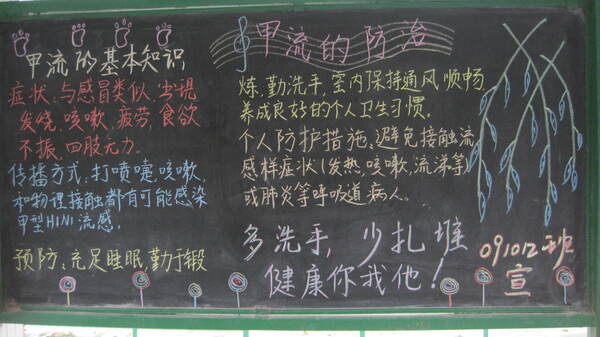 甲流的基本知识
症状:与感冒类似.出现
发烧.咳嗽,疲劳,食欲
不振,四肢无力.
传播方式:打喷嚏,咳嗽,
和物理接触都有可能感染
甲型H1N1流感,
预防:充足睡眠,勤于锻
甲流的防治
炼,勤洗手,室内保持通风顺畅,
养成良好的个人卫生习惯.
个人防护措施:避免接触流
感样症状(发热,咳嗽,流涕等)
或肺炎等呼吸道病人.
多洗手,少扎堆
健康你我他!
091012班
宣